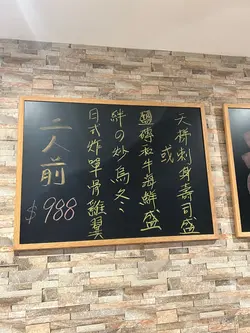 天拼刺身壽司盛
或
鹽磚和牛海鮮盛
絆の炒烏冬
日式炸單骨雞翼
二人前
$988